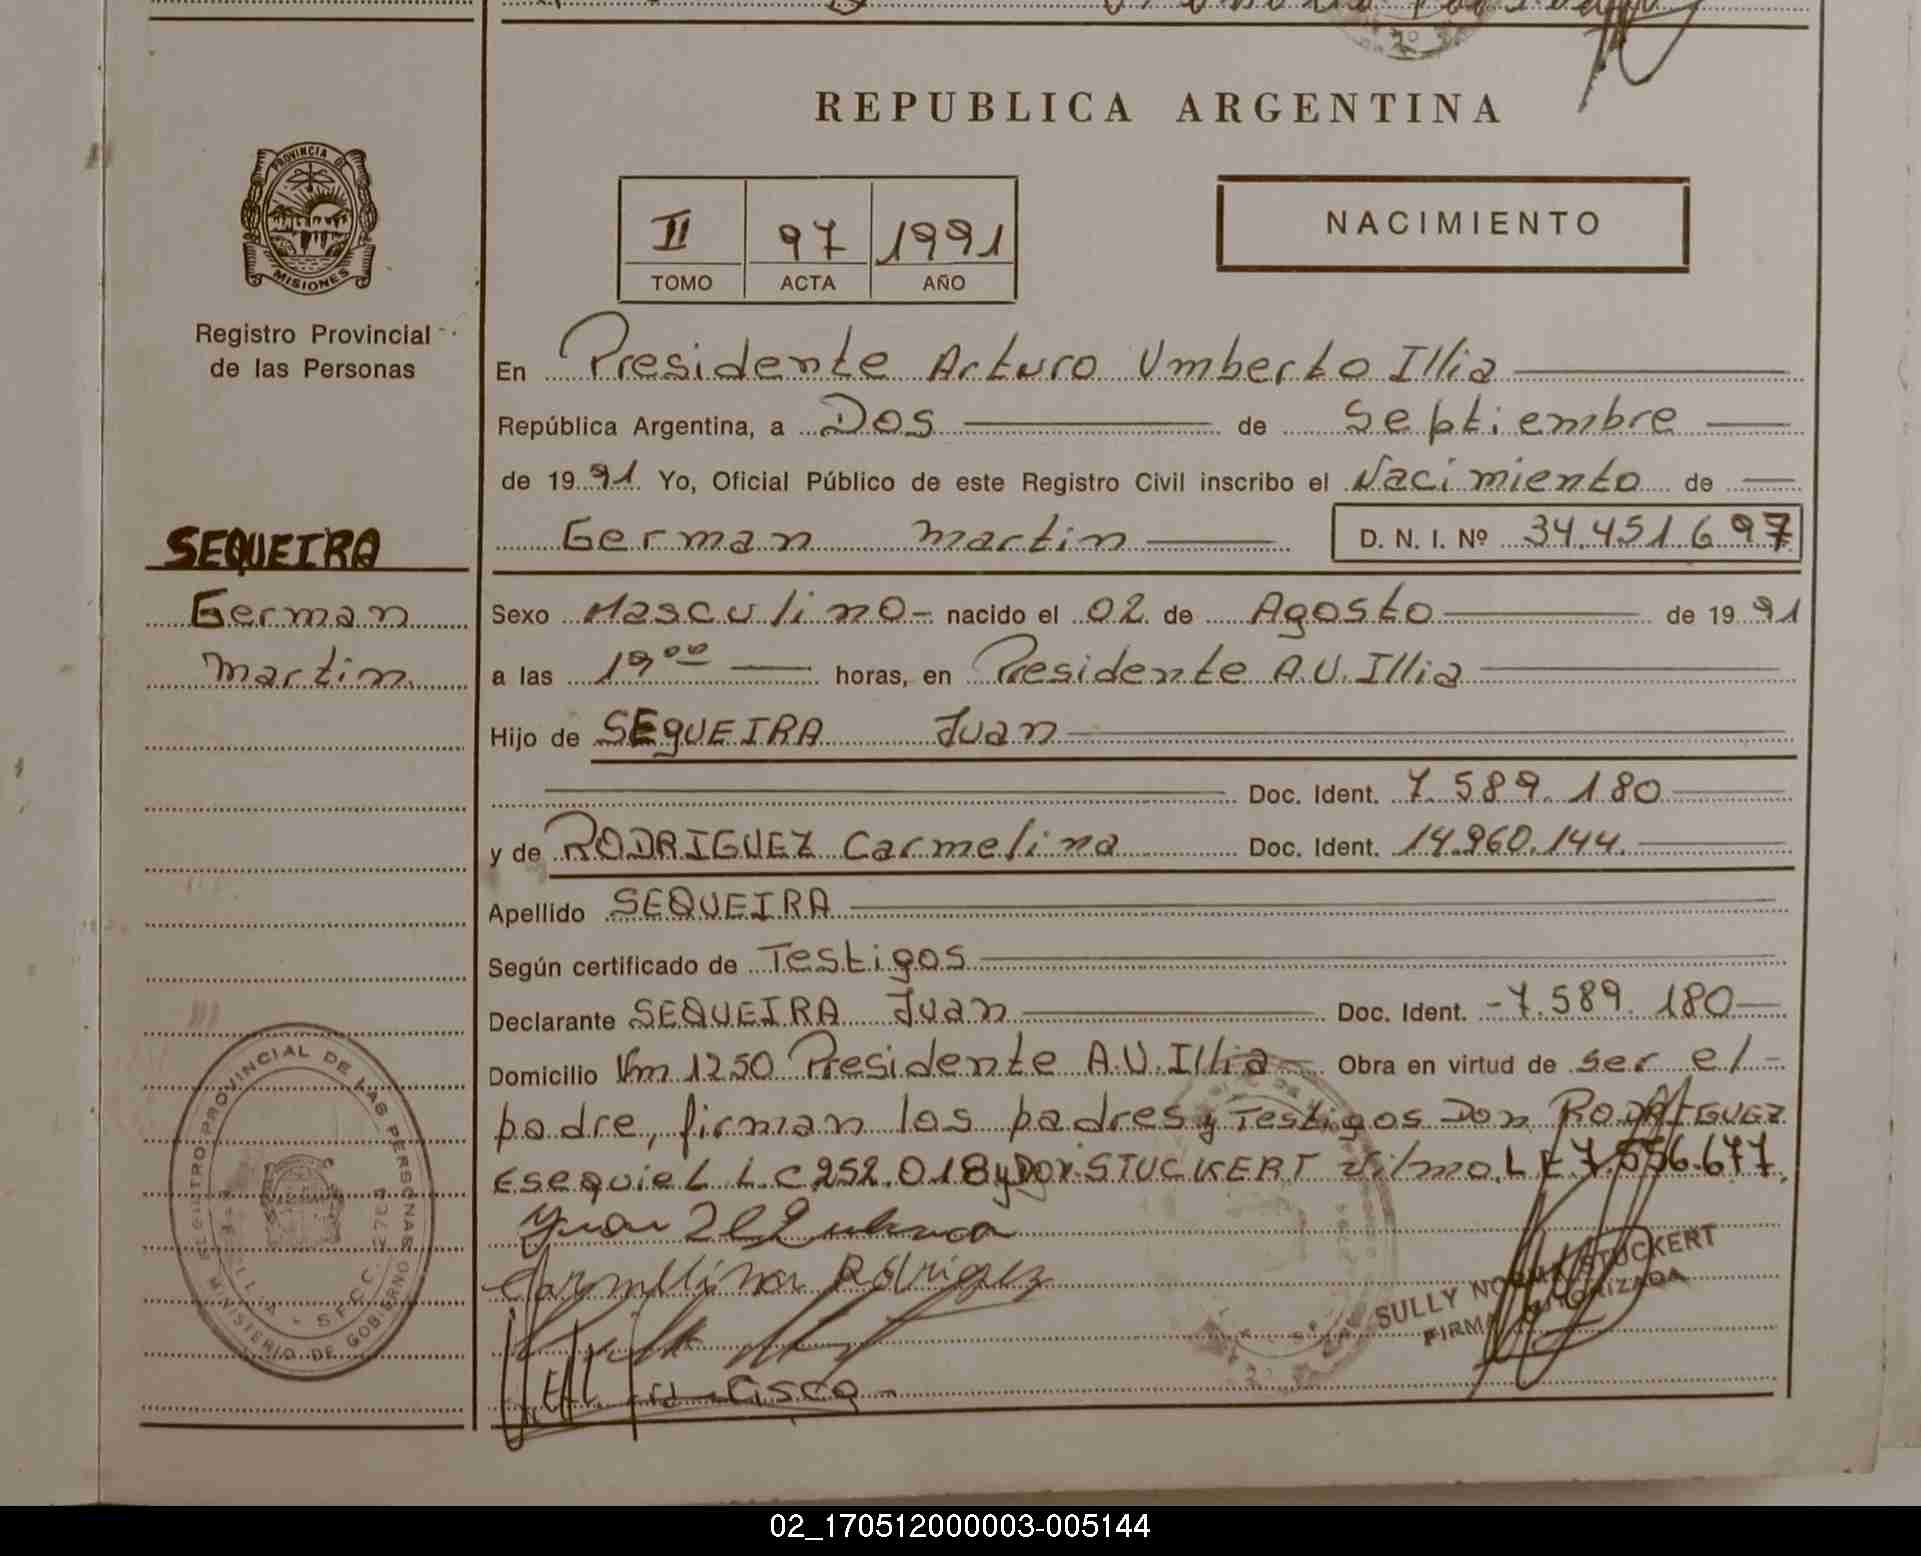 REPUBLICA ARGENTINA
PROVINCIA DE
MISIONES
Registro Provincial
de las Personas
II 97 1991
TOMO ACTA AÑO
NACIMIENTO
En Presidente Arturo Umberto Illia
República Argentina, a Dos de Septiembre
de 1991 Yo, Oficial Público de este Registro Civil inscribo el Nacimiento de
German Martin D. N. I. Nº 34.451.697
SEQUEIRA
German
Martin
Sexo Masculino - nacido el 02 de Agosto de 1991
a las 19:00 horas, en Presidente A.U. Illia
Hijo de SEQUEIRA Juan
Doc. Ident. 7.589.180
y de RODRIGUEZ Carmelina Doc. Ident. 14.960.144
Apellido SEQUEIRA
Según certificado de Testigos
Declarante SEQUEIRA Juan Doc. Ident. -7.589.180
Domicilio Km 1250 Presidente A.U. Illia Obra en virtud de ser el
padre, firman los padres y Testigos Don RODRIGUEZ
Esequiel L.C 252.018 y Don STUCKERT Wilmo. L E 7.556.677
Juan
Carmellina Rodriguez
SULLY NORMA STUCKERT
FIRMA AUTORIZADA
REGISTRO PROVINCIAL DE LAS PERSONAS
MINISTERIO DE GOBIERNO
02_170512000003-005144